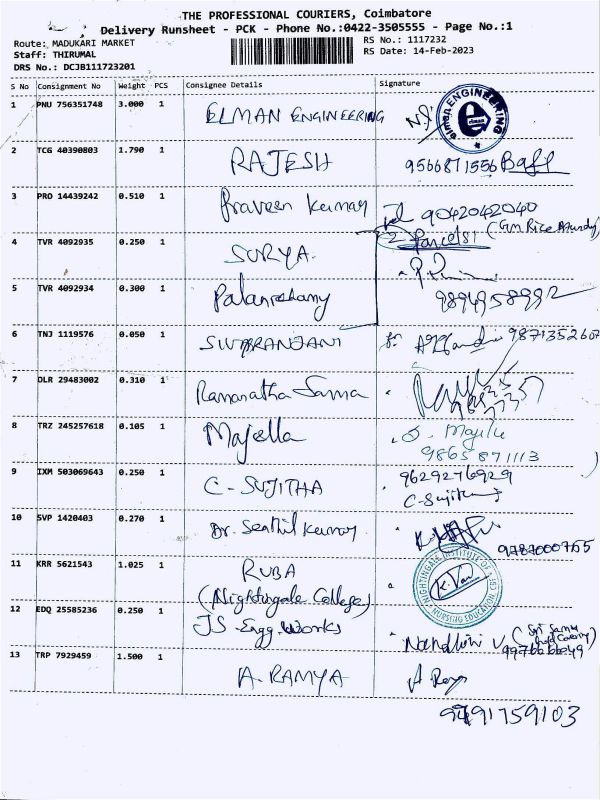 THE PROFESSIONAL COURIERS, Coimbatore
Delivery Runsheet - PCK - Phone No.:0422-3505555 - Page No.:1
Route: MADUKARI MARKET
RS No.: 1117232
Staff: THIRUMAL
RS Date: 14-Feb-2023
DRS No.: DCJB111723201
S No Consignment No Weight PCS Consignee Details Signature
1 PNU 756351748 3.000 1 ELMAN ENGINEERING
elman ENGINEERING
2 TCG 40390803 1.790 1 RAJESH 9566871556
3 PRO 14439242 0.510 1 Praveen Kumar 9042042040
2 Parcels!
4 TVR 4092935 0.250 1 SURYA.
5 TVR 4092934 0.300 1 Palanichamy 9894958992
6 TNJ 1119576 0.050 1 SIVARANJANI
7 DLR 29483002 0.310 1 Ramanatha Sarma
8 TRZ 245257618 0.105 1 Majella
9865871113
9 IXM 503069643 0.250 1 C-SUJITHA 9629276929
10 SVP 1420403 0.270 1 Dr. Senthil Kumar
9787000765
11 KRR 5621543 1.025 1 RUBA
(Nightingale College)
NIGHTINGALE INSTITUTE OF NURSING EDUCATION
12 EDQ 25585236 0.250 1 JS Engg. Works
Nandhini V
13 TRP 7929459 1.500 1 A. RAMYA
9791759103